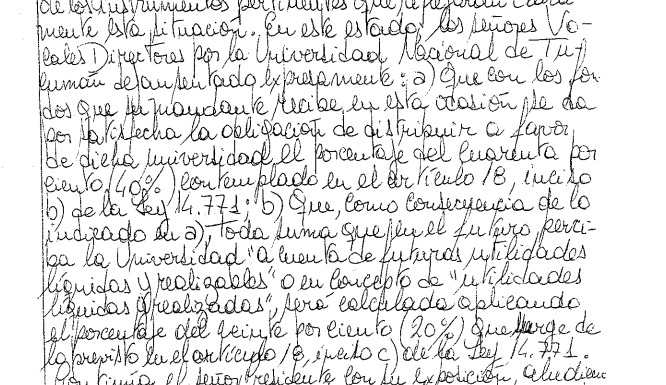 de los instrumentos pertinentes que reflejaran clara-
mente esta situación. En este estado, los señores Vo-
cales Directores por la Universidad Nacional de Tu-
cumán dejan sentado expresamente: a) Que con los fon-
dos que su mandante recibe en esta ocasión, se da
por satisfecha la obligación de distribuir a favor
de dicha universidad, el porcentaje del cuarenta por
ciento (40%) contemplado en el artículo 18, inciso
b) de la Ley 14.771; b) Que, como consecuencia de lo
indicado en a), toda suma que en el futuro perci-
ba la Universidad "a cuenta de futuras utilidades
líquidas y realizables" o en concepto de "utilidades
líquidas y realizadas", será calculada aplicando
el porcentaje del veinte por ciento (20%) que surge de
lo previsto en el artículo 18, inciso c) de la Ley 14.771.
Continúa el señor Presidente con su exposición, aludien